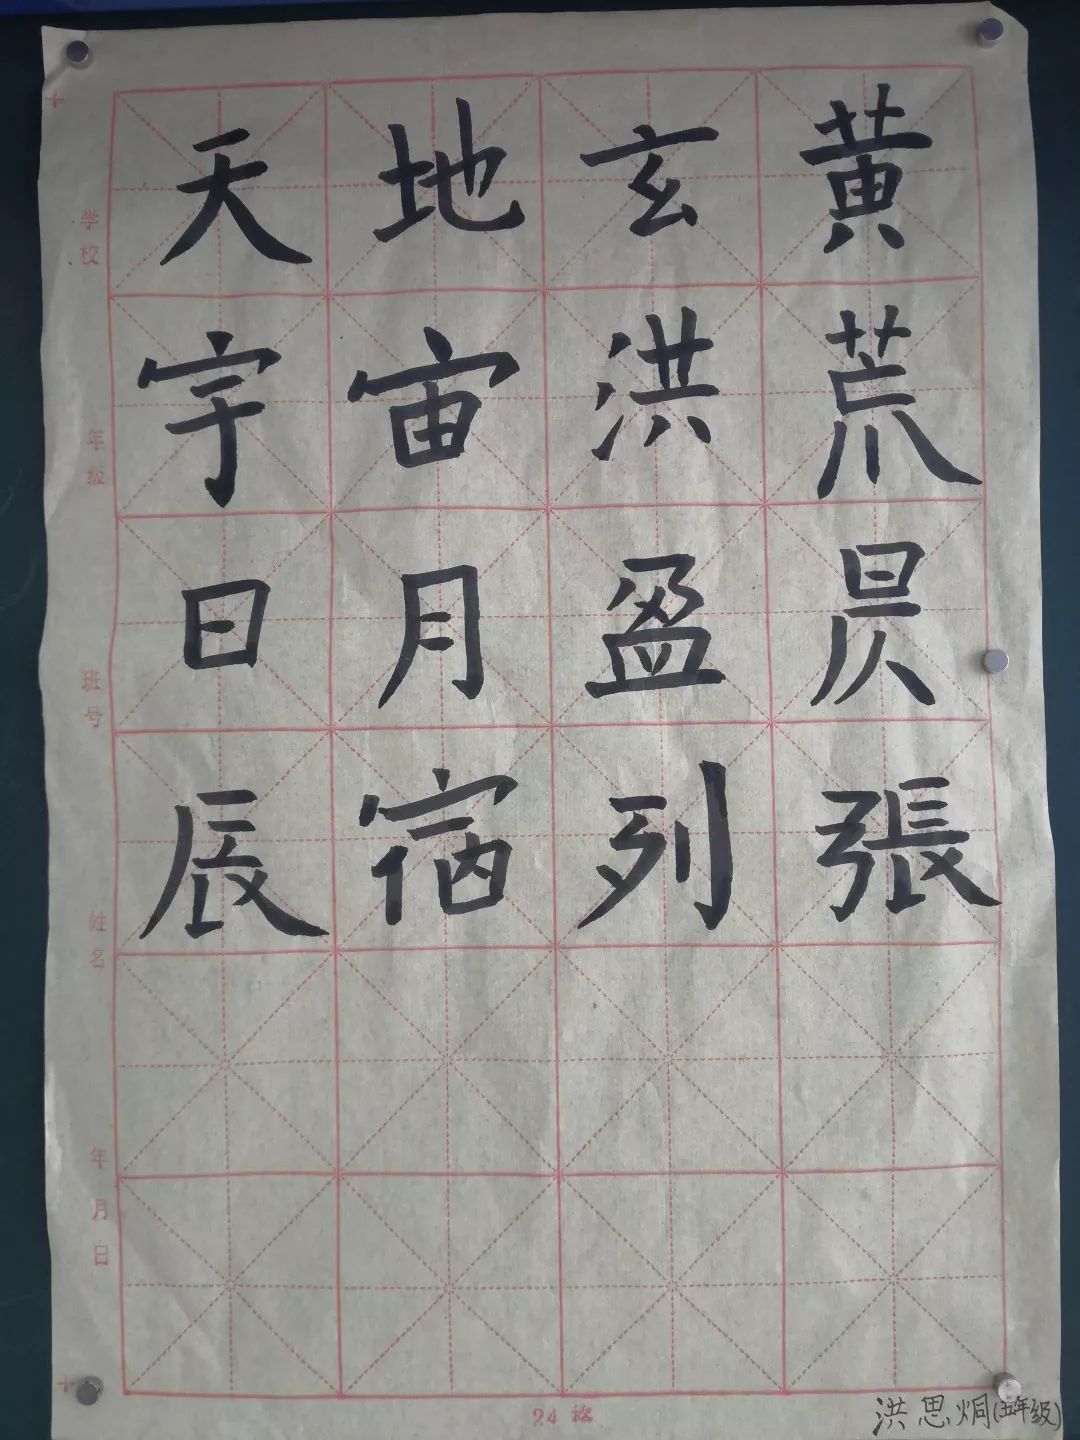 天地玄黄
宇宙洪荒
日月盈昃
辰宿列張
学校
年级
班号
姓名
年月日
24格
洪思炯(五年级)